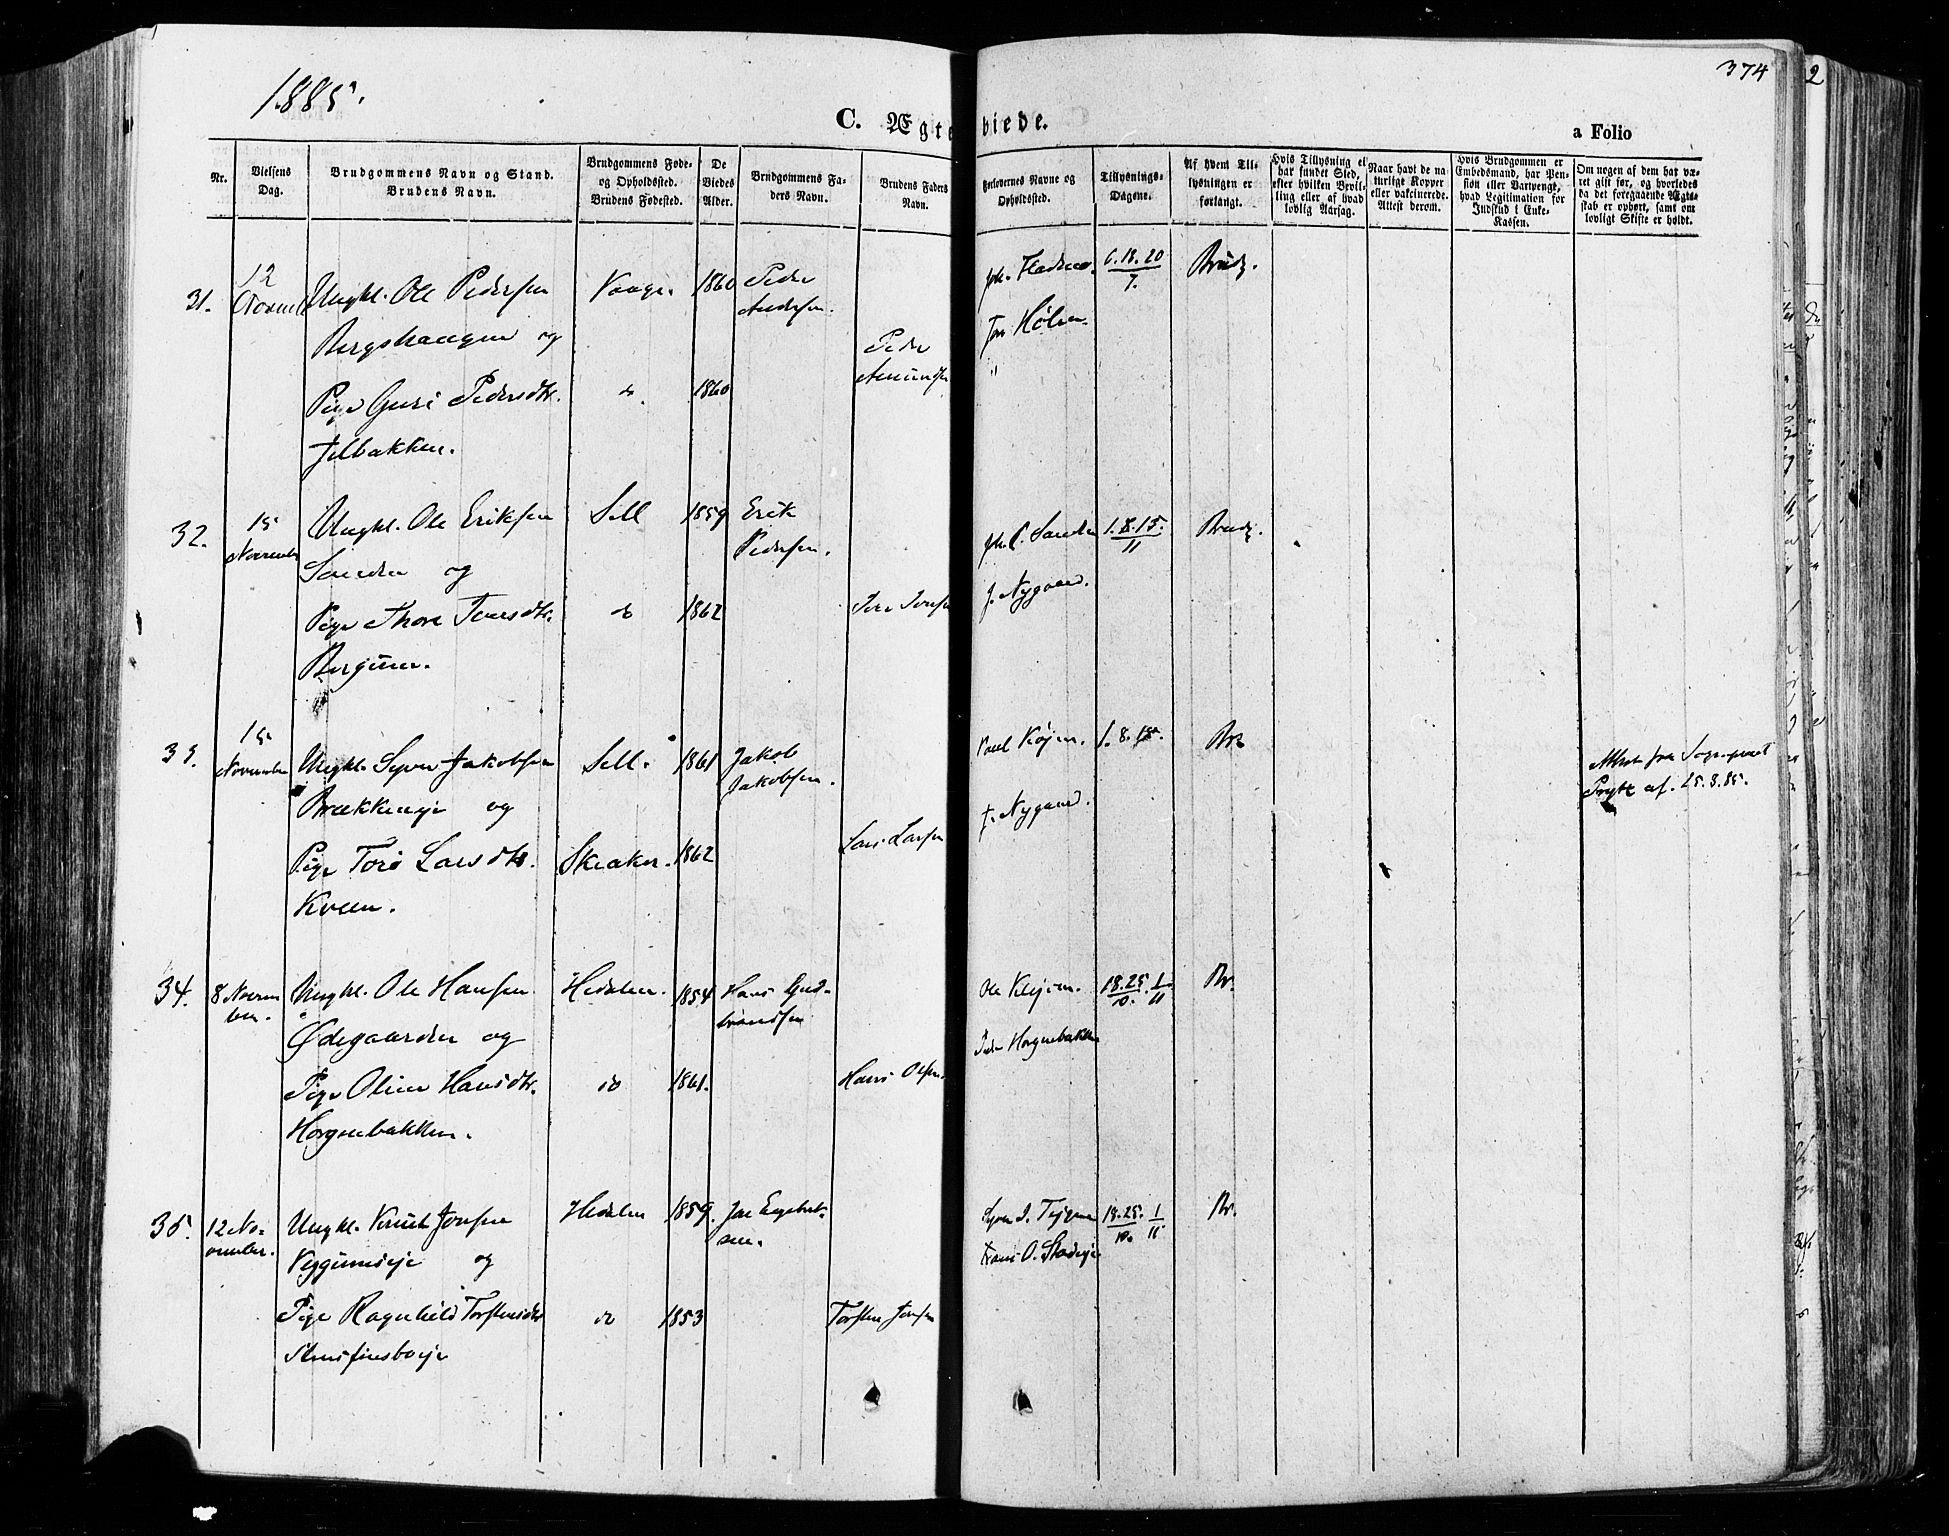 1885.
374
2
C. Ægteviede.
a Folio
Nr.
Vielsens Dag.
Brudgommens Navn og Stand. Brudens Navn.
Brudgommens Føde- og Opholdssted. Brudens Fødested.
De Viedes Alder.
Brudgommens Faders Navn.
Brudens Faders Navn.
Forlovernes Navne og Opholdssted.
Tillysnings-Dagene.
Af hvem Tillysningen er forlangt.
Hvis Tillysning ei har fundet Sted, efter hvilken Bevilling eller af hvad lovlig Aarsag.
Naar havt de naturlige Kopper eller vakcinerede. Attest derom.
Hvis Brudgommen er Embedsmand, har Pension eller Vartpenge, hvad Legitimation for Indskud i Enke-Kassen.
Om nogen af dem har været gift før, og hvorledes da det foregaaende Ægteskab er ophørt, samt om lovligt Skifte er holdt.
31.
12
Ungkl. Ole Pedersen
Vaage.
1860
Peder
Andersen.
og
Pige Guri Pedersdtr.
do
1860
Jelbakken.
Peder
Amundsen
6.13.20
7.
Brudg.
32.
15
November
Ungkl. Ole Eriksen
Sell
1859
Erik
Pedersen.
og
Pige Thore
do
1862
J. Nygaard.
1.8.15.
11
Brudg.
33.
15
November
Ungkl. Syver Jakobsen
Sell.
1861
Jakob
Jakobsen.
Brækkeneje og
Pige Toro Larsdtr.
Skeaker.
1862
Lars Larsen
Kveen.
J. Nygaard.
1.8.15.
Br
Attest fra Sognepræst
af. 25.8.85.
34.
8 Novem
ber.
Ungkl. Ole Hansen
Hedalen.
1854
Hans Gud-
brandsen
Ødegaarden og
Pige Oline Hansdtr.
do
1861.
Hans Olsen.
Horgenbakken.
Peder Horgenbakken
18.25. 1
10. 11
Br.
35.
12 No-
vember.
Ungkl. Knud Jonsen
Hedalen
1859.
Jon Engebret-
sen.
og
Pige Ragnhild Torstensdtr
do
1853
Torsten Jonsen
18.25. 1
10. 11
Br.